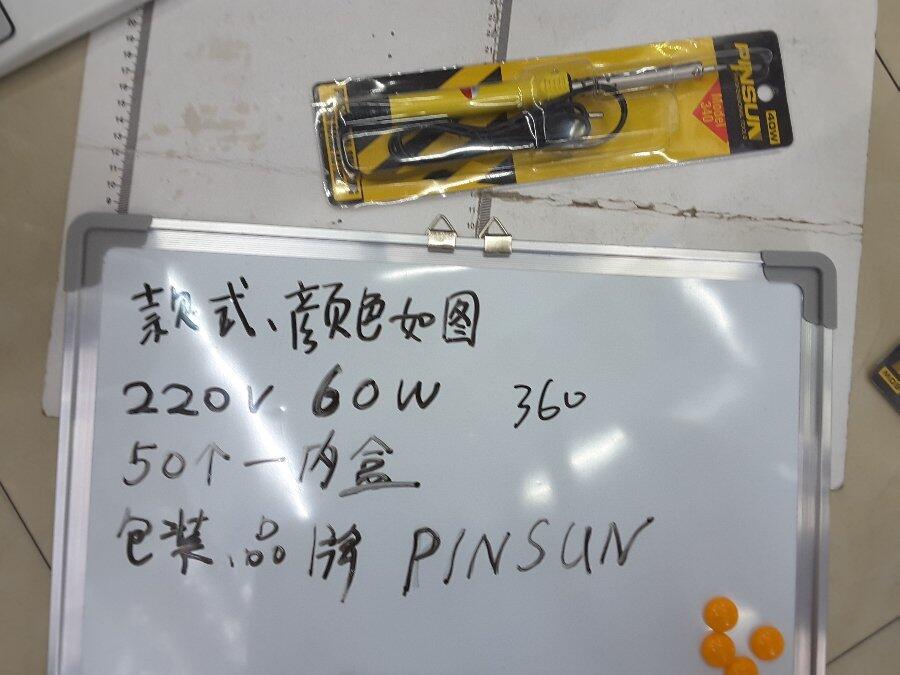 PINSUN
40W
Model
340
款式、颜色如图
220V 60W 360
50个一内盒
包装、品牌 PINSUN